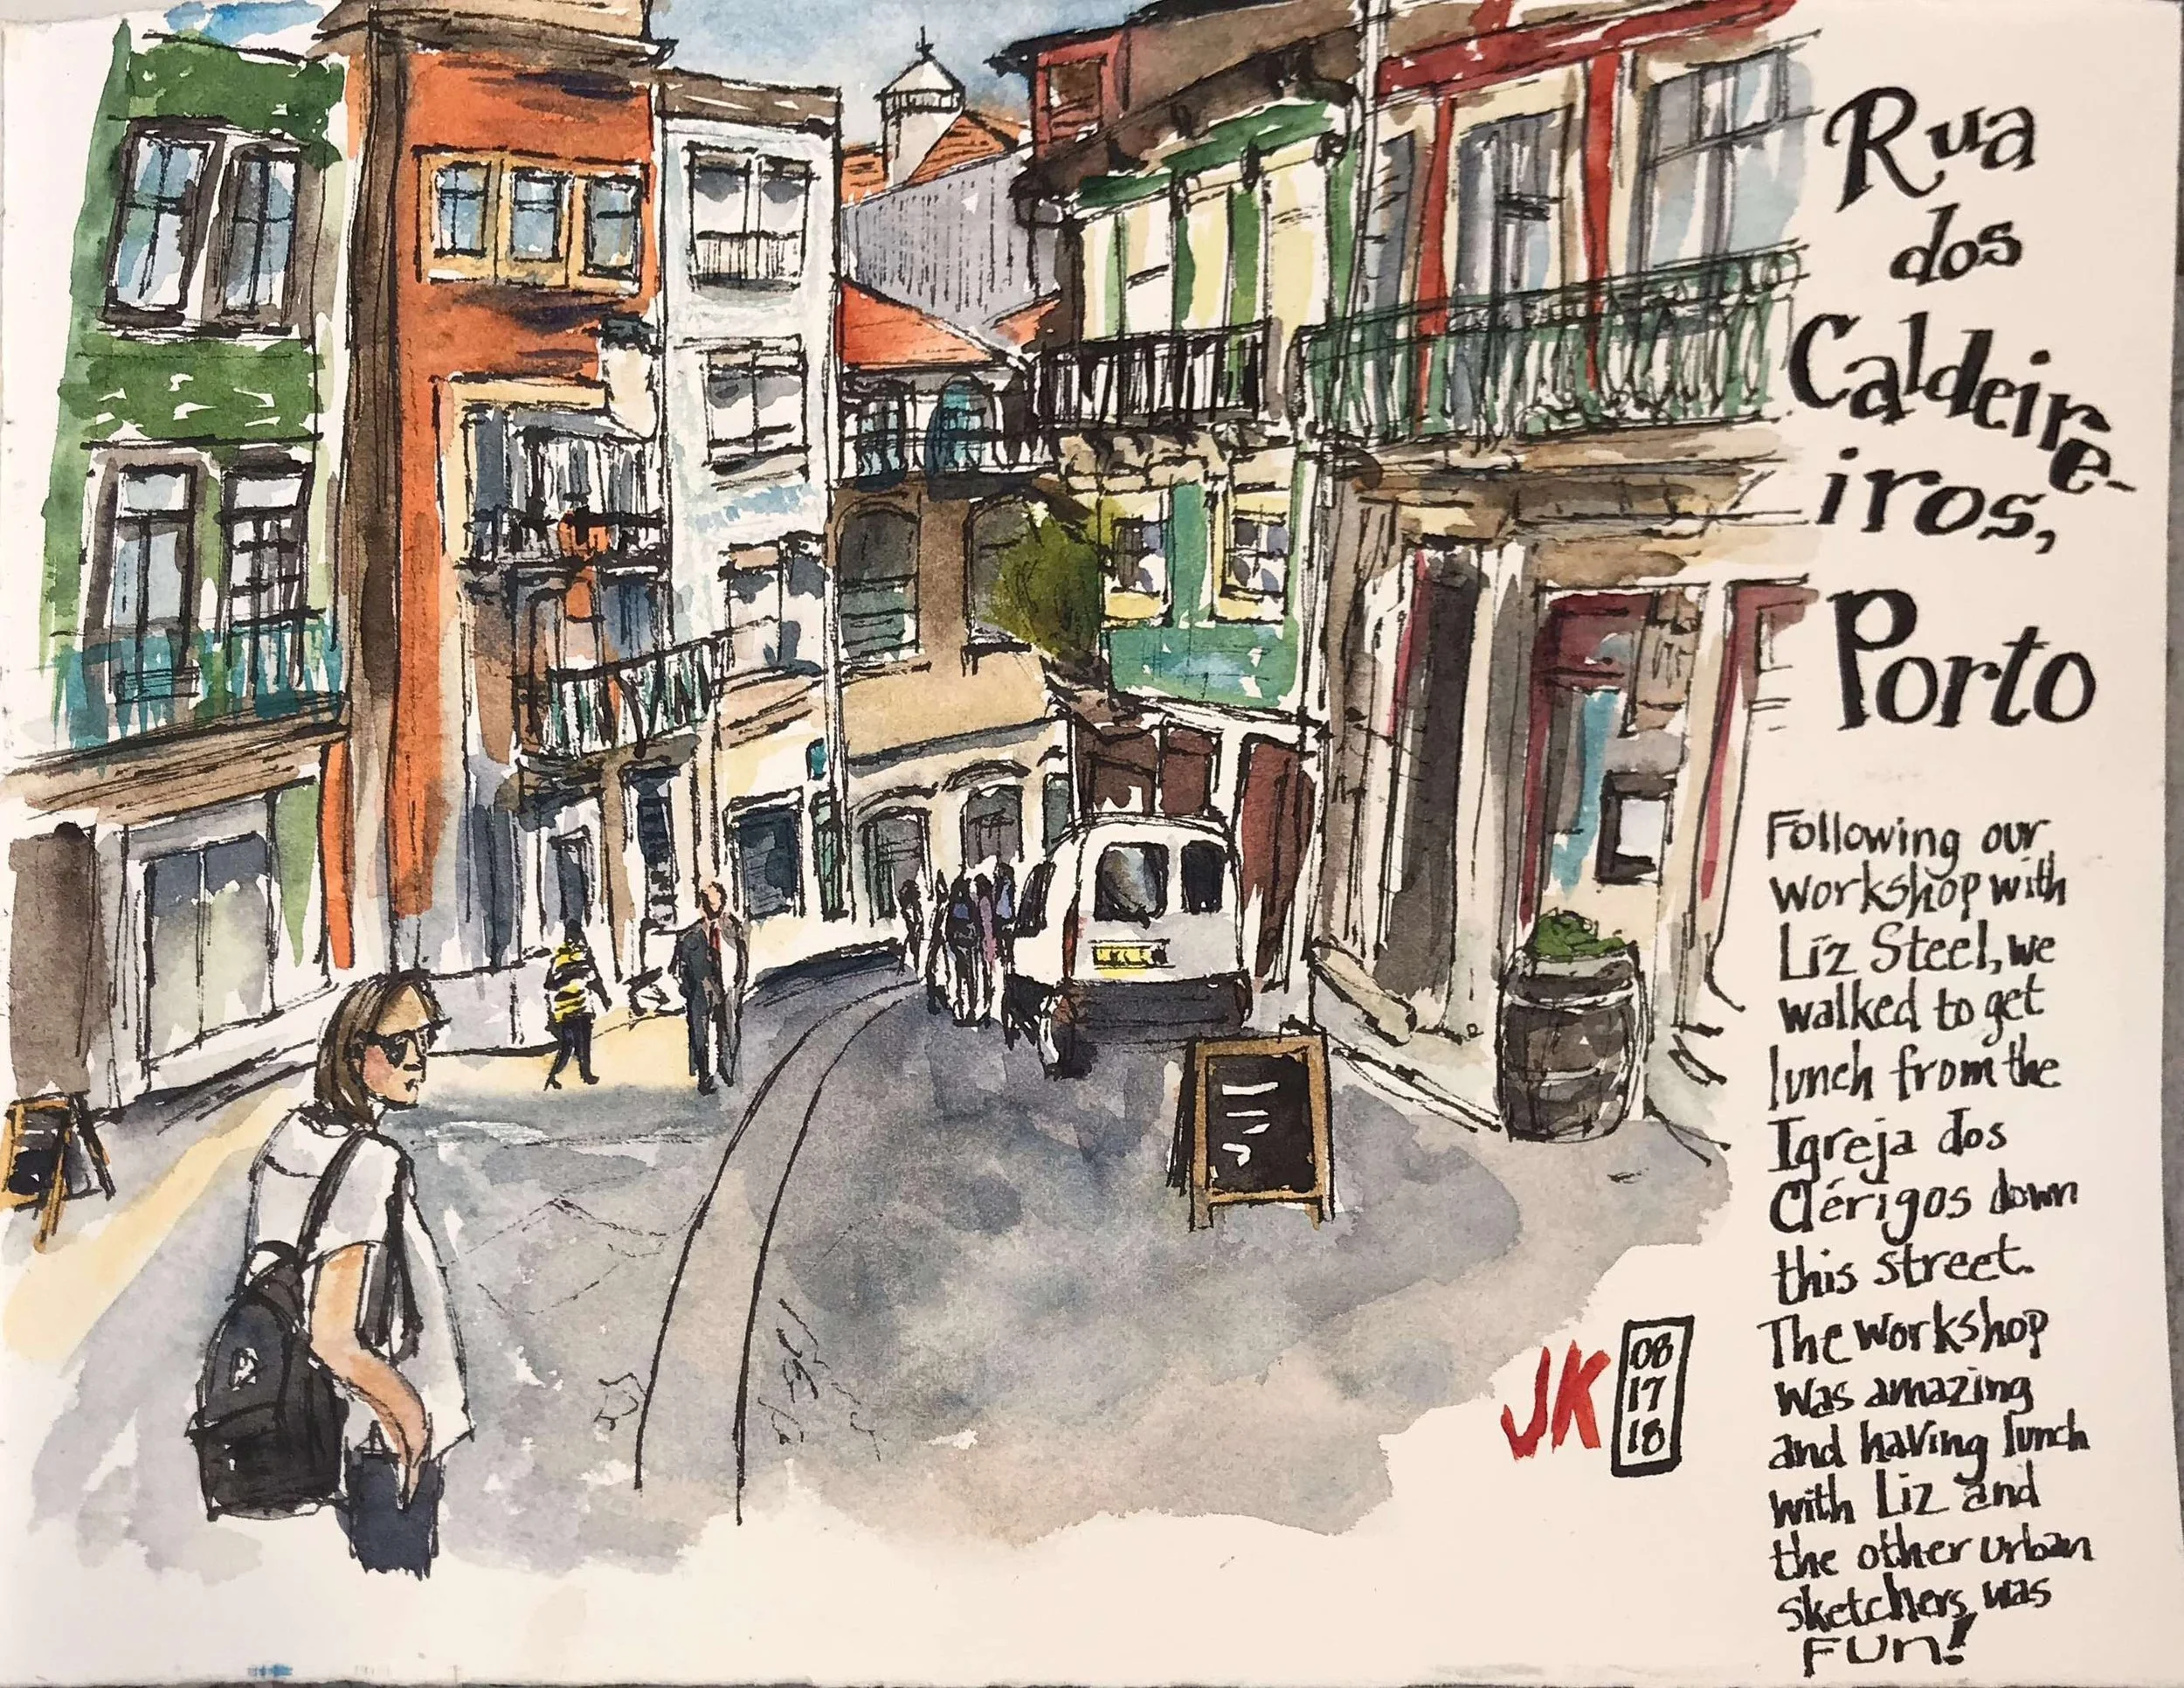 Rua
dos
Caldeire-
iros,
Porto
Following our
workshop with
Liz Steel, we
walked to get
lunch from the
Igreja dos
Clérigos down
this street.
The workshop
was amazing
and having lunch
with Liz and
the other urban
sketchers was
FUN!
JK
08
17
18